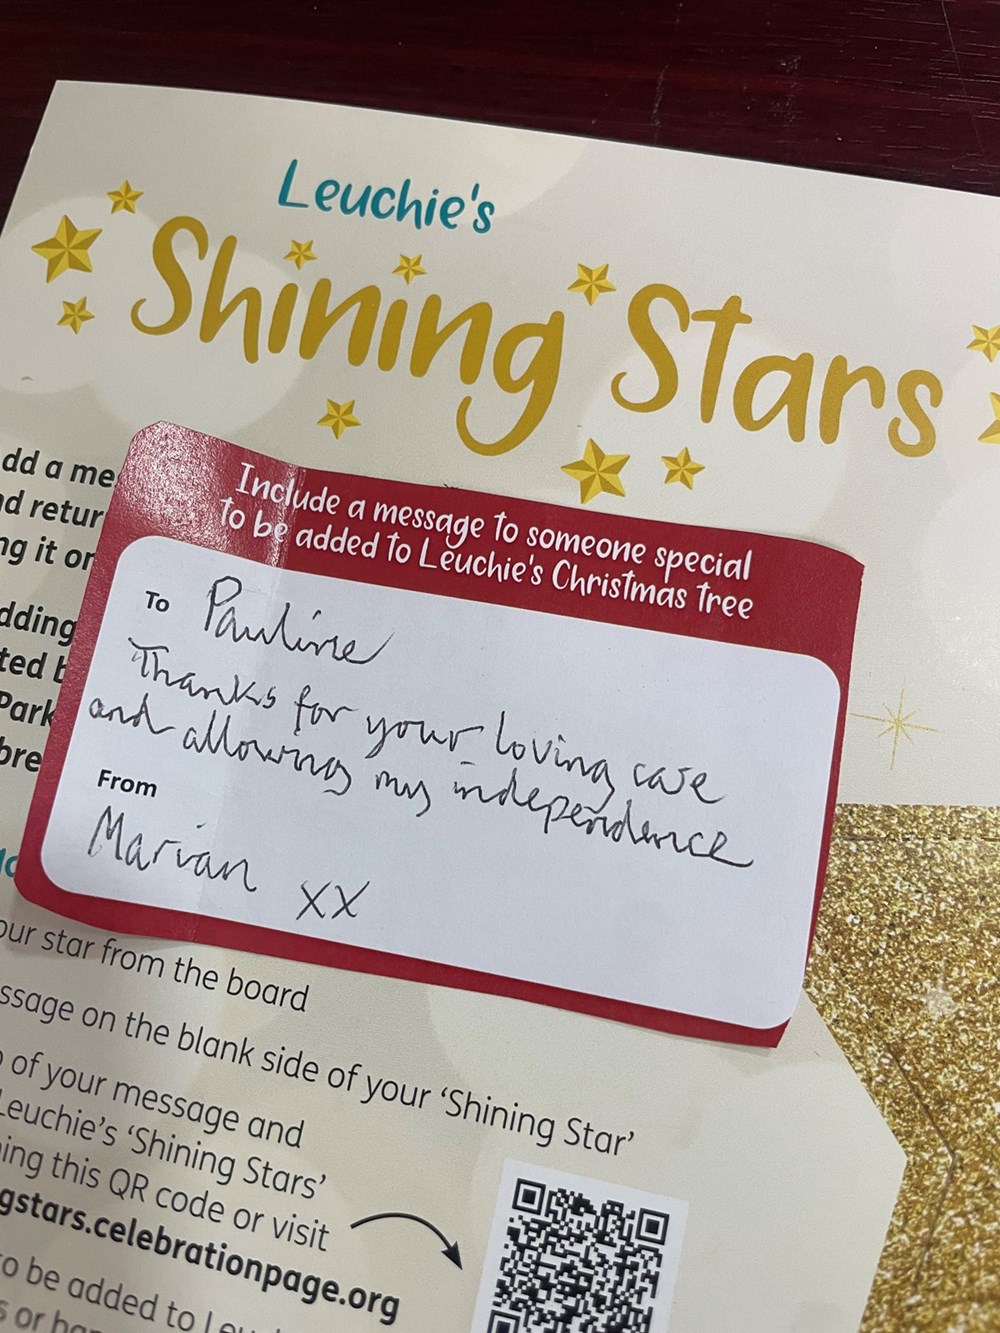 Leuchie's
Shining Stars
dd a me
d retur
ng it or
dding
ted b
Park
bre
Include a message to someone special
to be added to Leuchie's Christmas tree
To Pauline
Thanks for your loving care
and allowing my independence
From
Marian XX
our star from the board
ssage on the blank side of your ‘Shining Star’
of your message and
Leuchie's ‘Shining Stars’
ning this QR code or visit
gstars.celebrationpage.org
o be added to Leu
s or han